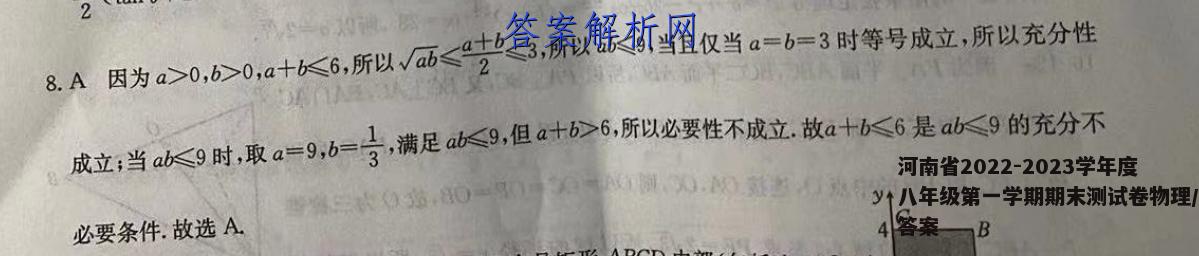 2
答案解析网
8. A 因为 a>0,b>0,a+b≤6,所以 √ab≤(a+b)/2≤3,所以 ab≤9,当且仅当 a=b=3 时等号成立,所以充分性
成立;当 ab≤9 时,取 a=9,b=1/3,满足 ab≤9,但 a+b>6,所以必要性不成立.故a+b≤6 是 ab≤9 的充分不
河南省2022-2023学年度
八年级第一学期期末测试卷物理/
答案
必要条件.故选 A.
y
4
C
B